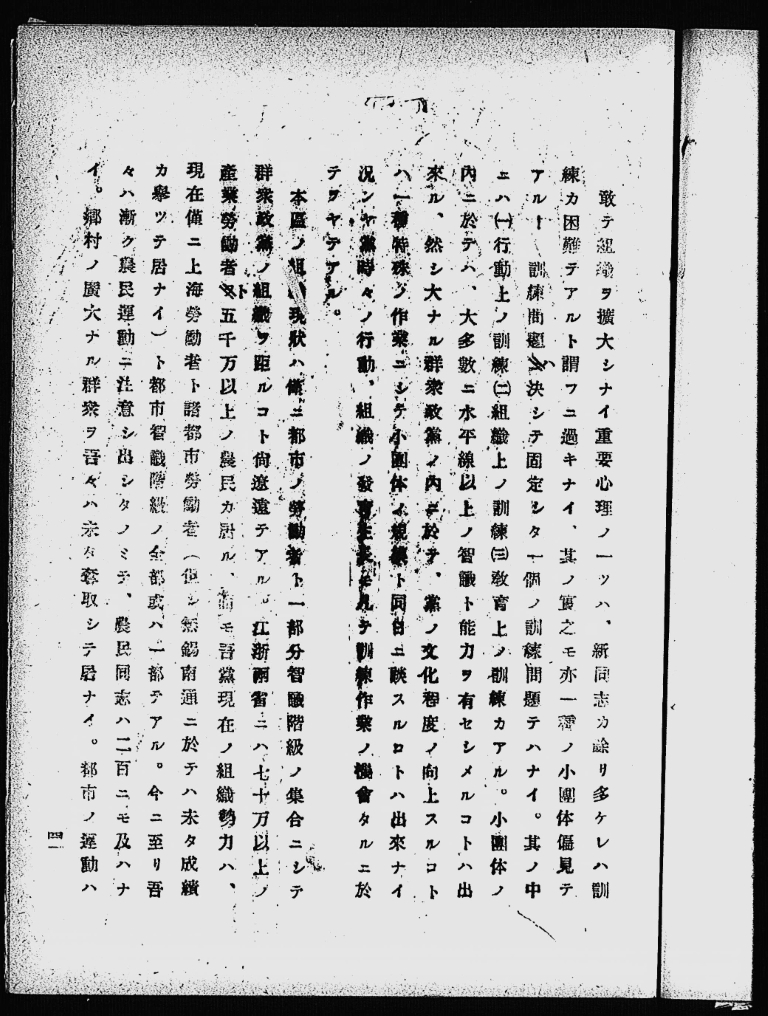 敢テ組織ヲ擴大シナイ重要心理ノ一ツハ、新同志カ餘リ多ケレハ訓
練カ困難テアルト謂フニ過キナイ、其ノ實之モ亦一種ノ小團体偏見テ
アル！　訓練問題ハ決シテ固定シタ一個ノ訓練問題テハナイ。其ノ中
ニハ㈠行動上ノ訓練㈡組織上ノ訓練㈢敎育上ノ訓練カアル。小團体ノ
內ニ於テハ、大多數ニ水平線以上ノ智識ト能力ヲ有セシメルコトハ出
來ル、然シ大ナル群衆政黨ノ內ニ於テ、黨ノ文化程度ノ向上スルコト
ハ一種特殊ノ作業ニシテ小團体ノ規模ト同日ニ談スルコトハ出來ナイ
況ンヤ黨時々ノ行動、組織ノ發育生長モ凡テ訓練作業ノ機會タルニ於
テヲヤテアル。
本區ノ組織現狀ハ僅ニ都市ノ勞働者ト一部分智識階級ノ集合ニシテ
群衆政黨ノ組織ヲ距ルコト尙遼遠テアル。江浙兩省ニハ七十万以上ノ
產業勞働者ト五千万以上ノ農民カ居ル、而モ吾黨現在ノ組織勢力ハ、
現在僅ニ上海勞働者ト諸都市勞働者（但シ無錫南通ニ於テハ未タ成績
カ擧ツテ居ナイ）ト都市智識階級ノ全部或ハ一部テアル。今ニ至リ吾
々ハ漸ク農民運動ニ注意シ出シタノミテ、農民同志ハ二百ニモ及ハナ
イ。鄕村ノ廣大ナル群衆ヲ吾々ハ未タ奪取シテ居ナイ。都市ノ運動ハ
四一